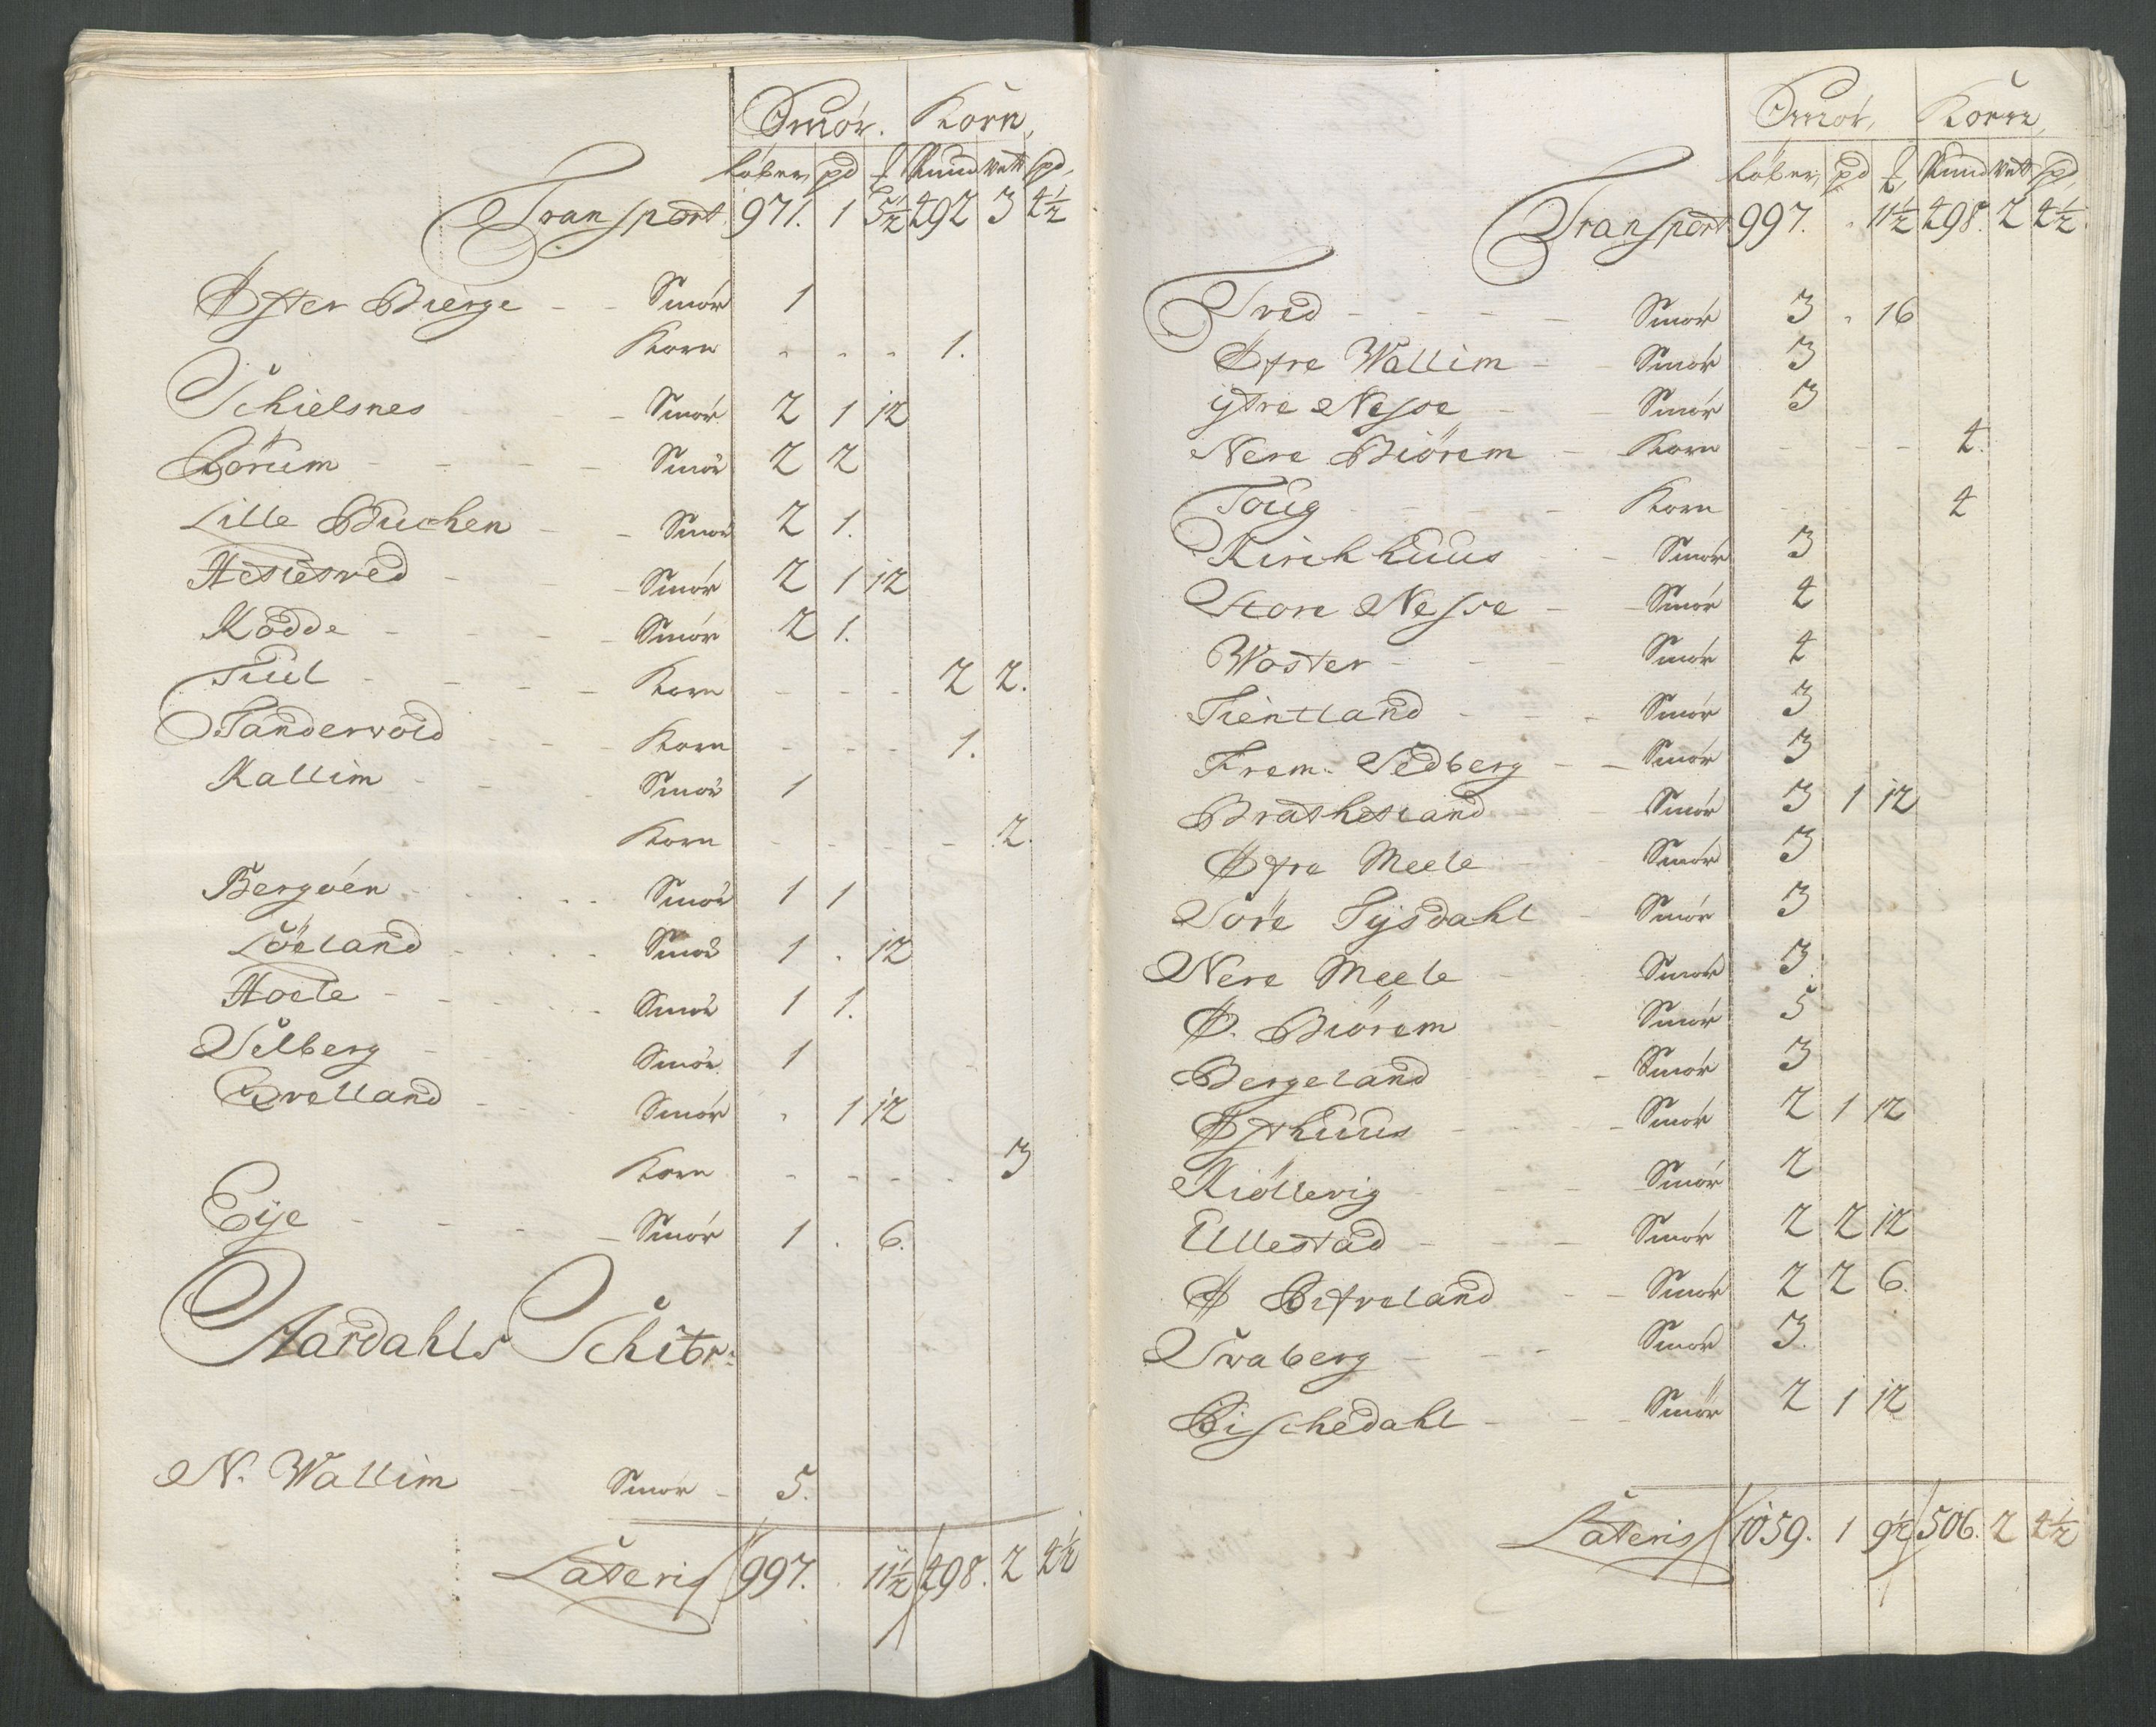 Smör. Korn,
løber, pd ℔ Pund Vett Spd,
Transport 971. 1 5½ 492 3 4½
Øster Bierge - - Smör 1
Korn - - - 1.
Schielsnes - Smör 2 1 12
Börum - - - - Smör 2 2
Lille Buchen - - Smör 2 1.
Hetlesved - - Smör 2 1 12
Kodde - - - - Smör 2 1.
Tiül - - - - Korn - - - 2 2.
Tandervold - - - Korn - - - 1.
Kallim - - - Smör 1
Korn - - - - 2.
Bergvén - - - - Smör 1 1
Löeland - - - - Smör 1 . 12
Hoele - - - - Smör 1 1.
Selberg - - Smör 1
Qvelland - - - Smör . 1 12
Korn - - - - 3
Eÿe - - - - Smör 1 . 6.
Aardahls Schibr:
N. Wallim Smör - 5.
Lateris 997. . 11½ 498. 2 4½
Smör, Korn,
løber, pd ℔ Pund Vett Spd,
Transport 997. . 11½ 498. 2 4½.
Tved - - - - Smör 3 . 16
Øfre Wallim - - Smör 3
ÿtre Nesse - - Smör 3
Nere Biörem - Korn - - - 4.
Toug - - - - Korn - - - 4
Kirchhuus - - Smör 3
Store Nesse - - Smör 4
Woster - - - Smör 4
Tientland - - - Smör 3
Frem. Sedberg - - Smör 3
Brashetland - Smör 3 1 12
Øfre Meele - - Smör 3
Søre Tÿsdahl - Smör 3
Nere Meele - Smör 3.
Ø. Biörem - Smör 5
Bergeland - - Smör 3
Østhuus - - - - Smör 2 1 12
Kiöllevig - - - Smör 2
Ullestad - - - Smör 2 2 12
Ø Bifreland - - Smör 2 2 6.
Svaberg - - - Smör 3.
Fischedahl - - - Smör 2 1 12
Lateris 1059. 1 9½ 506. 2 4½